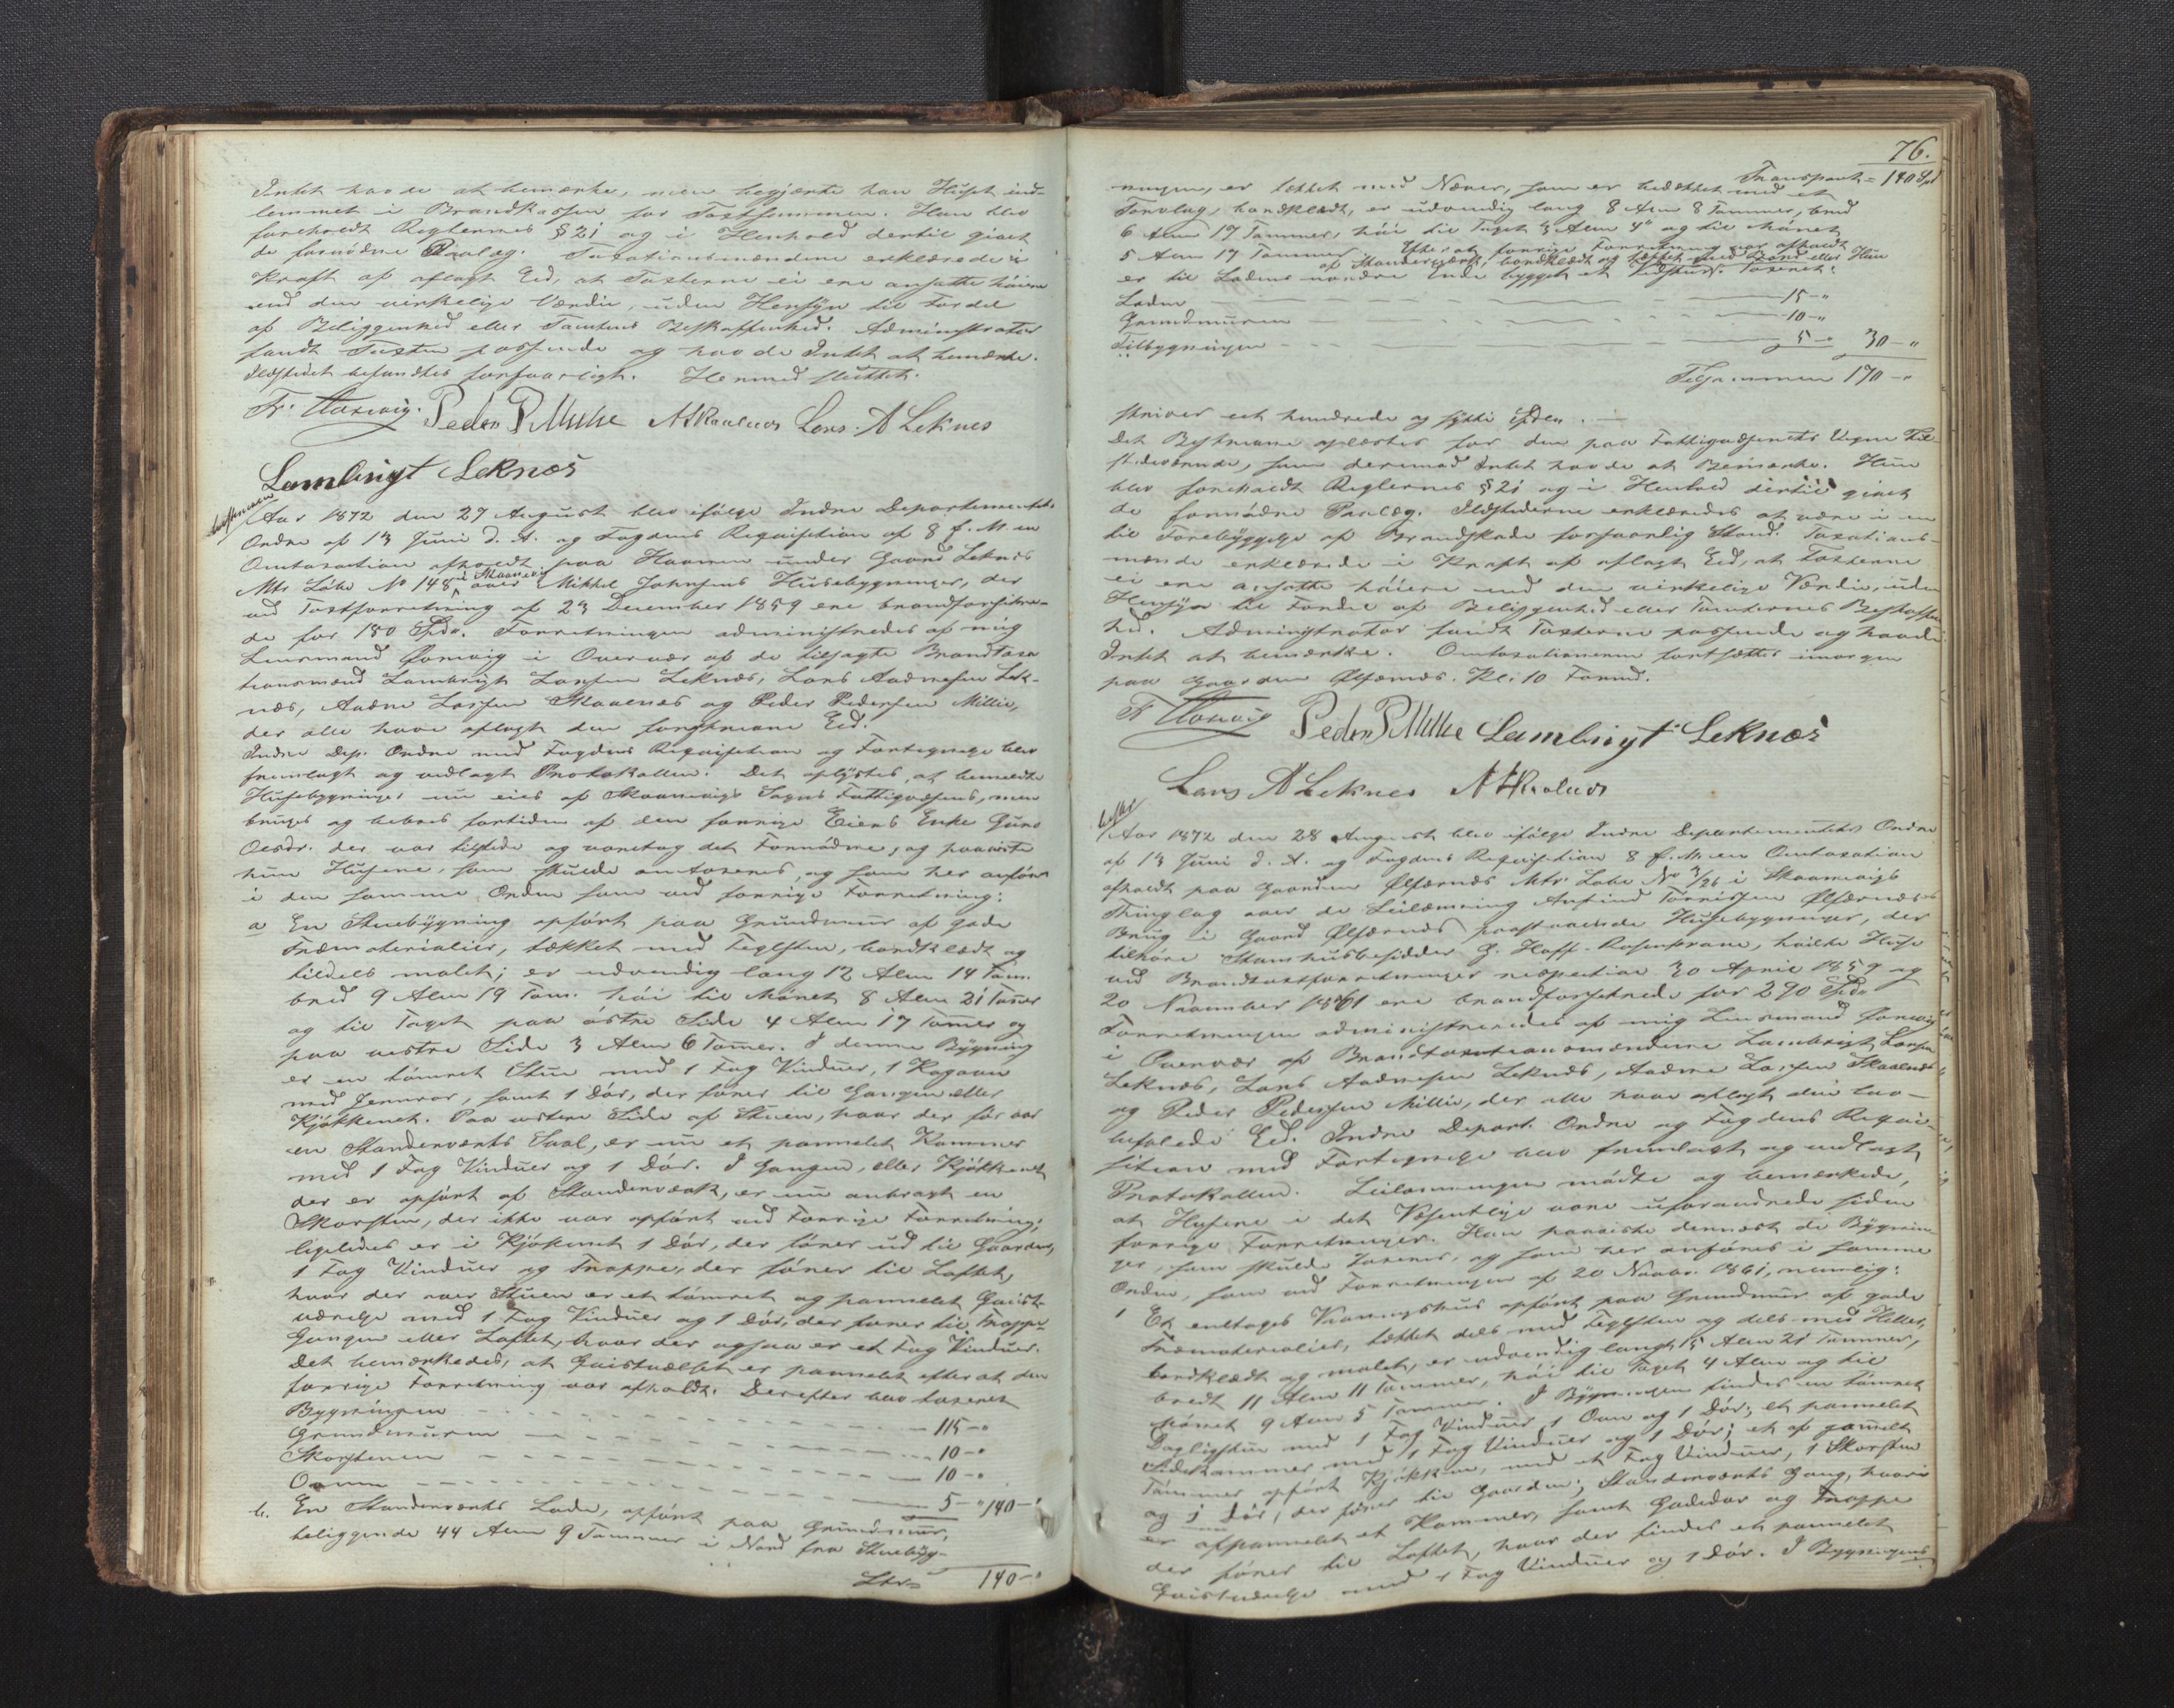 Intet havde at bemærke, men begjærte han Huset ind-
lemmet i Brandkassen for Taxtsummen. Han blev
foreholdt Reglernes § 21 og i Henhold dertil givet
de fornödne Paalæg. Taxationsmændene erklærede i
Kraft af aflagt Eed, at Taxterne ei ere ansatte höiere
end den virkelige Værdie, uden Hensyn til Fordel
af Beliggenhed eller Tomtens Beskaffenhed. Administrator
fandt Taxten passende og havde Intet at bemærke.
Ildstedet befandtes forsvarligt. Hermed sluttet.
Peder P Millie A L Skaalnes Lars. A Leknes
Lambrigt Leknes
Aar 1872 den 27 August blev ifölge Indre Departementets
Ordre af 13 Juni d. A. og Fogdens Reqvisition af 8 f. M. en
Omtaxation afholdt paa Haavnen under Gaard Leknes
Mtr Löbe No 148 i Skaanevig over Mikkel Johnsens Husebygninger, der
ved Taxtforretning af 23 December 1859 ere brandforsikre-
de for 180 Spd. Forretningen administredes af mig
Lensmand i Overvær af de tilsagte Brandtaxa
tionsmænd Lambrigt Larsen Leknes, Lars Aadnesen Lek-
nes, Aadne Larsen Skaalnes og Peder Pedersen Millie,
der alle have aflagt den forskrevne Eed.
Indre Dep. Ordre med Fogdens Reqvisition og Fortegnelse blev
fremlagt og vedlagt Protokollen. Det oplystes, at bemeldte
Husebygninger nu eies af Skaanevigs Sogns Fattigvæsens, men
bruges og beboes fortiden af den forrige Eiers Enke Guro
Olsdr. der var tilstede og varetog det Fornödne, og paaviste
hun Husene, som skulde omtaxeres, og som her anföres
i den samme Orden som ved forrige Forretning:
a En Stuebygning opfört paa Grundmuur af gode
Træmaterialier, tækket med Teglsten, bordklædt og
tildels malet; er udvendig lang 12 Alen 14 Tom.
bred 9 Alen 19 Tom. höi til Mönet 8 Alen 21 Tomer
og til Taget paa östre Side 4 Alen 17 Tomer og
paa vestre Side 3 Alen 6 Tomer. I denne Bygning
er en tömret Stue med 1 Fag Vinduer, 1 Kogovn
med Jernrör, samt 1 Dör, der förer til Gangen eller
Kjökkenet. Paa vestre Side af Stuen, hvor der för var
en Standerværks Sval, er nu et pannelet Kammer
med 1 Fag Vinduer og 1 Dör. I Gangen, eller Kjökkenet
der er opfört af Standerværk, er nu anbragt en
Skorsten, der ikke var opfört ved Forrige Forretning;
ligeledes er i Kjökkenet 1 Dör, der förer ud til Gaarden,
1 Fag Vinduer og Trappe, der förer til Loftet,
hvor der over Stuen er et tömret og pannelet Qvist-
værelse med 1 Fag Vinduer og 1 Dör, der förer til Trappe-
Gangen eller Loftet, hvor der ogsaa er et Fag Vinduer.
Det bemærkedes, at Qvistværelset er pannelet efter at den
forrige Forretning var afholdt. Derefter blev taxeret
Bygningen 115 - "
Grundmuren 10 - "
Skorstenen 10 - "
Ovnen 5 - " 140 - "
b. En Standerværks Lade, opfört paa Grundmuur,
beliggende 44 Alen 9 Tommer i Nord fra Stuebyg-
140 - "
76.
Transport = 140 Spd
ningen, er tækket med Næver, som er bedækket med et
Torvlag, bordklædt, er udvendig lang 8 Alen 8 Tommer, bred
6 Alen 17 Tommer, höi til Taget 3 Alen 4" og til Mönet
5 Alen 17 Tommer. Efter at forrige Forretning var afholdt
af Standerværk, bordklædt og tækket med Bord eller
er til Ladens nordre Ende bygget et Taxeret:
Laden 15 - "
Grundmuren 10 - "
Tilbygningen 5 - " 30 - "
Tilsammen 170 - "
skriver eet hundrede og sytti Spdlr.
Det Beskrevne oplæstes for den paa Fattigvæsenets Vegne Til-
stedeværende, som derimod Intet havde at Bemærke. Hun
blev foreholdt Reglernes § 21 og i Henhold dertil givet
de fornödne Paalæg. Ildstederne erklæredes at være i en
til Forebyggelse af Brandskade forsvarlig Stand. Taxations-
mændene erklærede i Kraft af aflagt Eed, at Taxterne
ei ere ansatte höiere end den virkelige Værdie, uden
Hensyn til Fordel af Beliggenhed eller Tomternes Beskaffen
hed. Administrator fandt Taxterne passende og havde
Intet at bemærke. Omtaxationerne fortsættes imorgen
paa Gaarden Ølfærnes. Kl. 10 Formd.
Peder P Millie Lambrigt Leknes
Lars A Leknes A L Skaalnes
Aar 1872 den 28 August blev ifölge Indre Departementets Ordre
af 13 Juni d. A. og Fogdens Reqvisition 8 f. M. en Omtaxation
afholdt paa Gaarden Ølfærnes Mtr. Löbe No 3/26 i Skaanevigs
Thinglag over de Leilænding Anfind Tönnissen Ølfærneses
Brug i Gaard Ølfærnes paastaaende Husebygninger, der
tilhöre Stamhusbesidder G. Hoff-Rosenkrone, hvilke Huse
ved Brandtaxtforretninger respective 30 April 1859 og
20 November 1861 ere brandforsikrede for 290 Spd
Forretningen administreredes af mig Lensmand
i Overvær af Brandtaxationsmændene Lambrigt Larsen
Leknes, Lars Aadnesen Leknes, Aadne Larsen Skaalnes
og Peder Pedersen Millie, der alle have aflagt den lov-
befalede Eed. Indre Depart. Ordre og Fogdens Reqvi-
sition med Fortegnelse blev fremlagt og vedlagt
Protokollen. Leilændingen mödte og bemærkede,
at Husene i det Væsentlige vare uforandrede siden
forrige Forretninger. Han paaviste dernæst de Bygnin-
ger, som skulde taxeres, og som her anföres i samme
Orden, som ved Forretningen af 20 Novbr. 1861, nemlig:
1 Et enetages Vaaningshuus opfört paa Grundmuur af gode
Træmaterialier, tækket dels med Teglsten og dels med Heller,
bordklædt og malet, er udvendig langt 15 Alen 21 Tommer,
bredt 11 Alen 11 Tommer, höi til Taget 4 Alen og til
Mönet 9 Alen 5 Tommer. I Bygningen findes en tömret
Dagligstue med 1 Fag Vinduer, 1 Ovn og 1 Dör; et pannelet
Sidekammer med 1 Fag Vinduer og 1 Dör; et af gamelt
Tömmer opfört Kjökken, med et Fag Vinduer, 1 Skorsten
og 1 Dör, der förer til Gaarden; Standerværks Gang, hvori
er afpannelet et Kammer, samt Gadedör og Trappe
der förer til Loftet, hvor der findes et pannelet
Qvistværelse med 1 Fag Vinduer og 1 Dör. I Bygningens